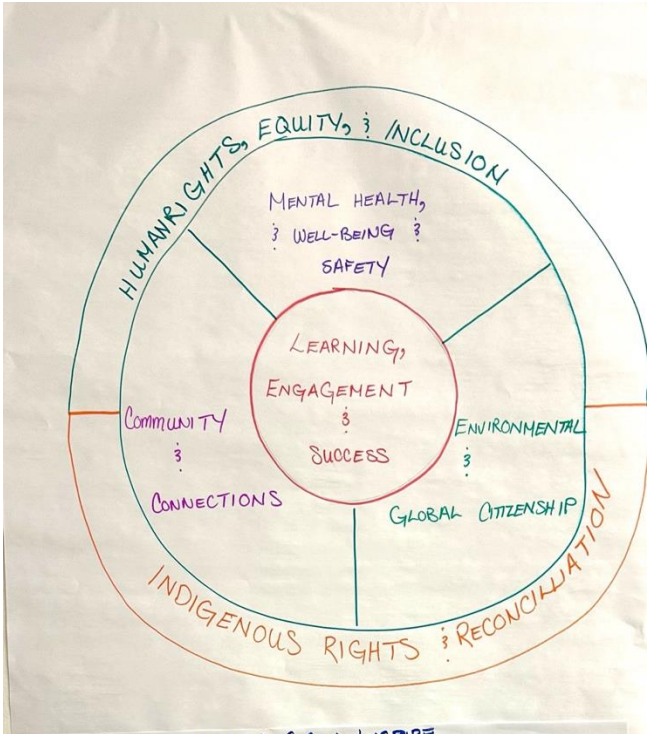 HUMAN RIGHTS, EQUITY, & INCLUSION
MENTAL HEALTH,
& WELL-BEING &
SAFETY
LEARNING,
ENGAGEMENT
&
SUCCESS
COMMUNITY
&
CONNECTIONS
ENVIRONMENTAL
&
GLOBAL CITIZENSHIP
INDIGENOUS RIGHTS & RECONCILIATION